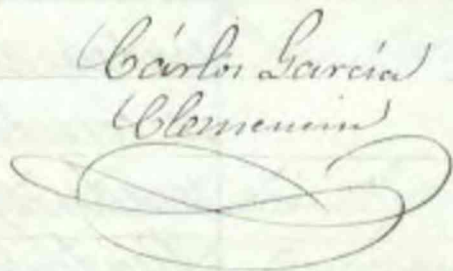 Cárlos García
Clemencin